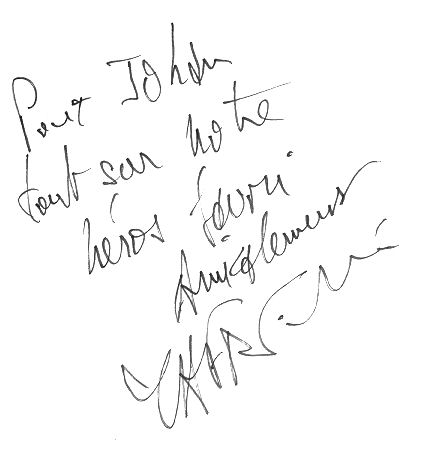 Pour Johan
tout sur notre
héros favori.
Amicalement